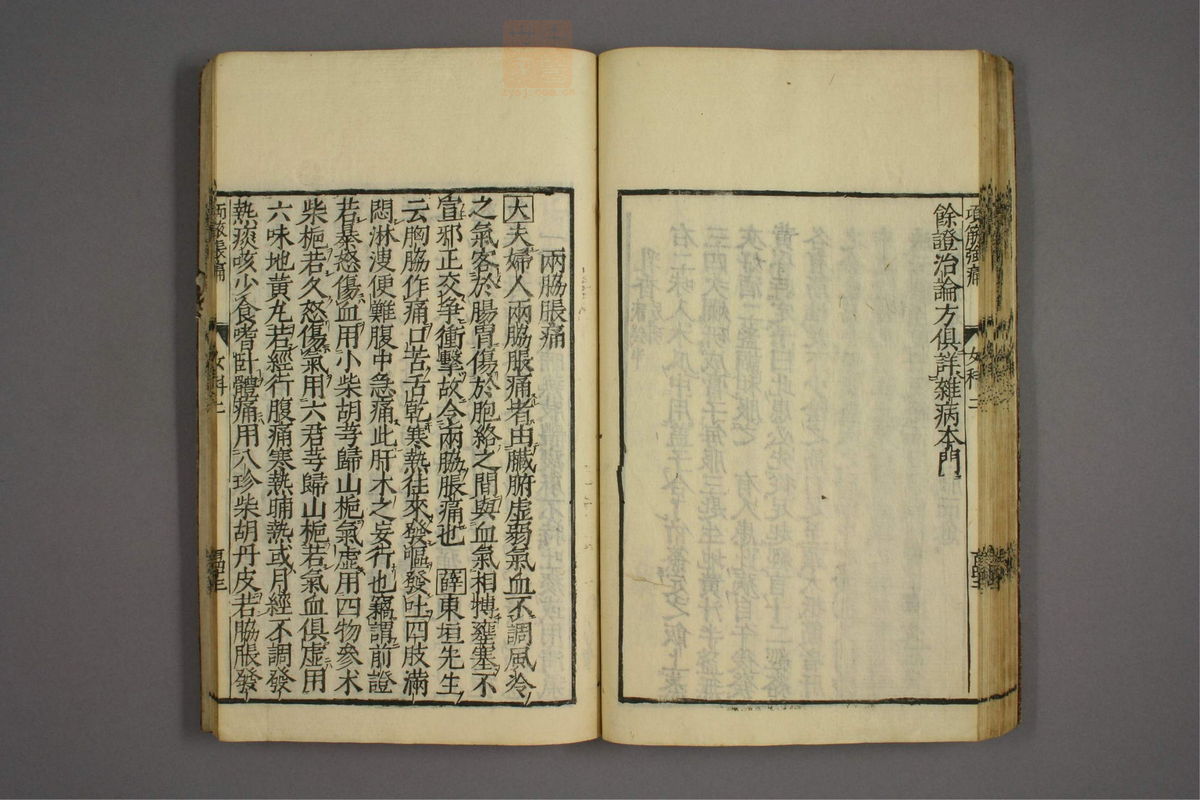 項筋強痛
女科二
餘證治論方俱詳雜病本門
一兩脇脹痛
大夫婦人兩脇脹痛者由臟腑虛弱氣血不調風冷
之氣客於腸胃傷於胞絡之間與血氣相搏壅塞不
宣邪正交爭衝擊故令兩脇脹痛也 薛東垣先生
云胸脇作痛口苦舌乾寒熱往來發嘔發吐四肢滿
悶淋溲便難腹中急痛此肝木之妄行也竊謂前證
若暴怒傷血用小柴胡芎歸山梔氣虛用四物參朮
柴梔若久怒傷氣用六君芎歸山梔若氣血俱虛用
六味地黃丸若經行腹痛寒熱晡熱或月經不調發
熱痰咳少食嗜卧體痛用八珍柴胡丹皮若脇脹發
兩脇脹痛
女科二